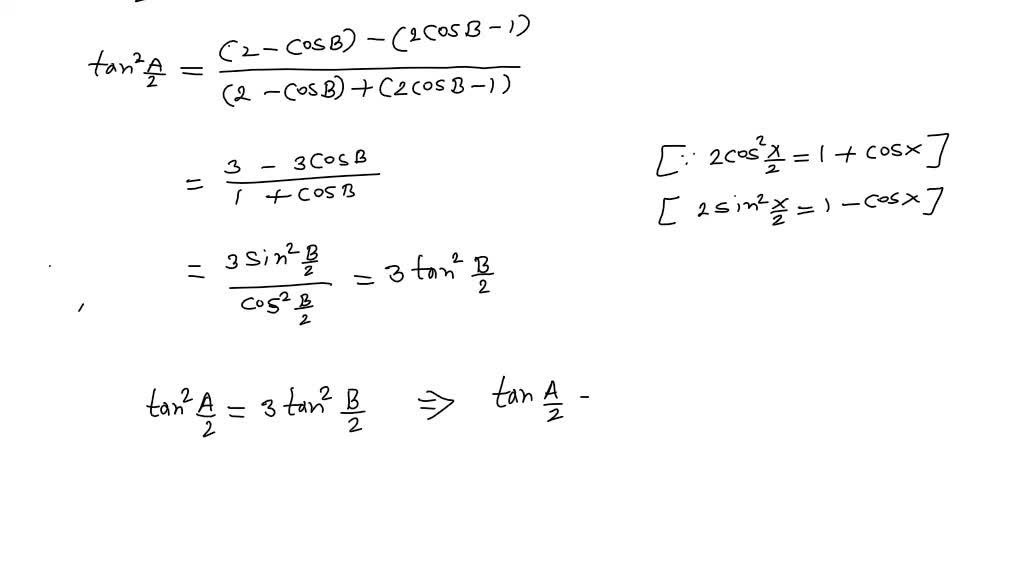 tan²A/2 = (2 - CosB) - (2CosB - 1) / (2 - CosB) + (2cosB - 1)
= 3 - 3CosB / 1 + COSB
[∵ 2cos²x/2 = 1 + cosx]
[ 2sin²x/2 = 1 - cosx]
= 3Sin²B/2 / Cos²B/2 = 3tan²B/2
tan²A/2 = 3tan²B/2 ⇒ tanA/2 -